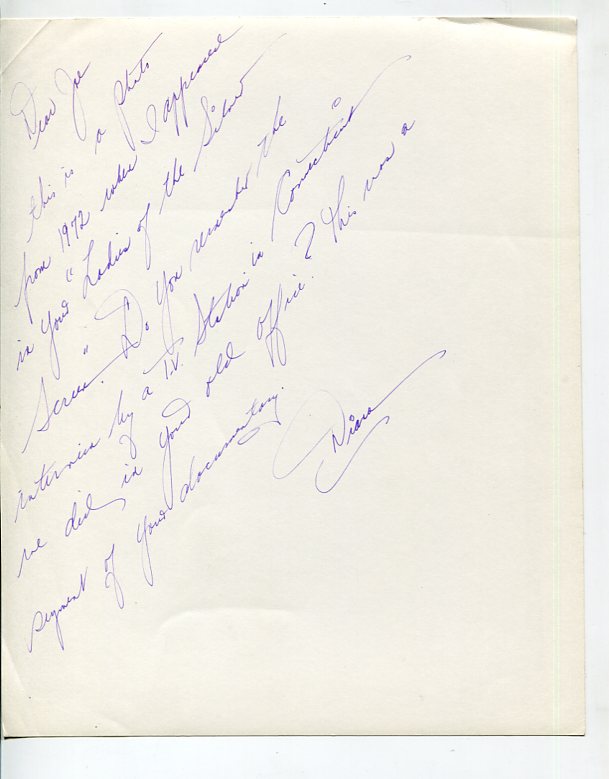 Dear Joe
this is a photo
from 1972 when I appeared
in your "Ladies of the Silver
Screen." Do you remember the
interview by a T.V. Station in Connecticut
we did in your old office? This was a
segment of your documentary.